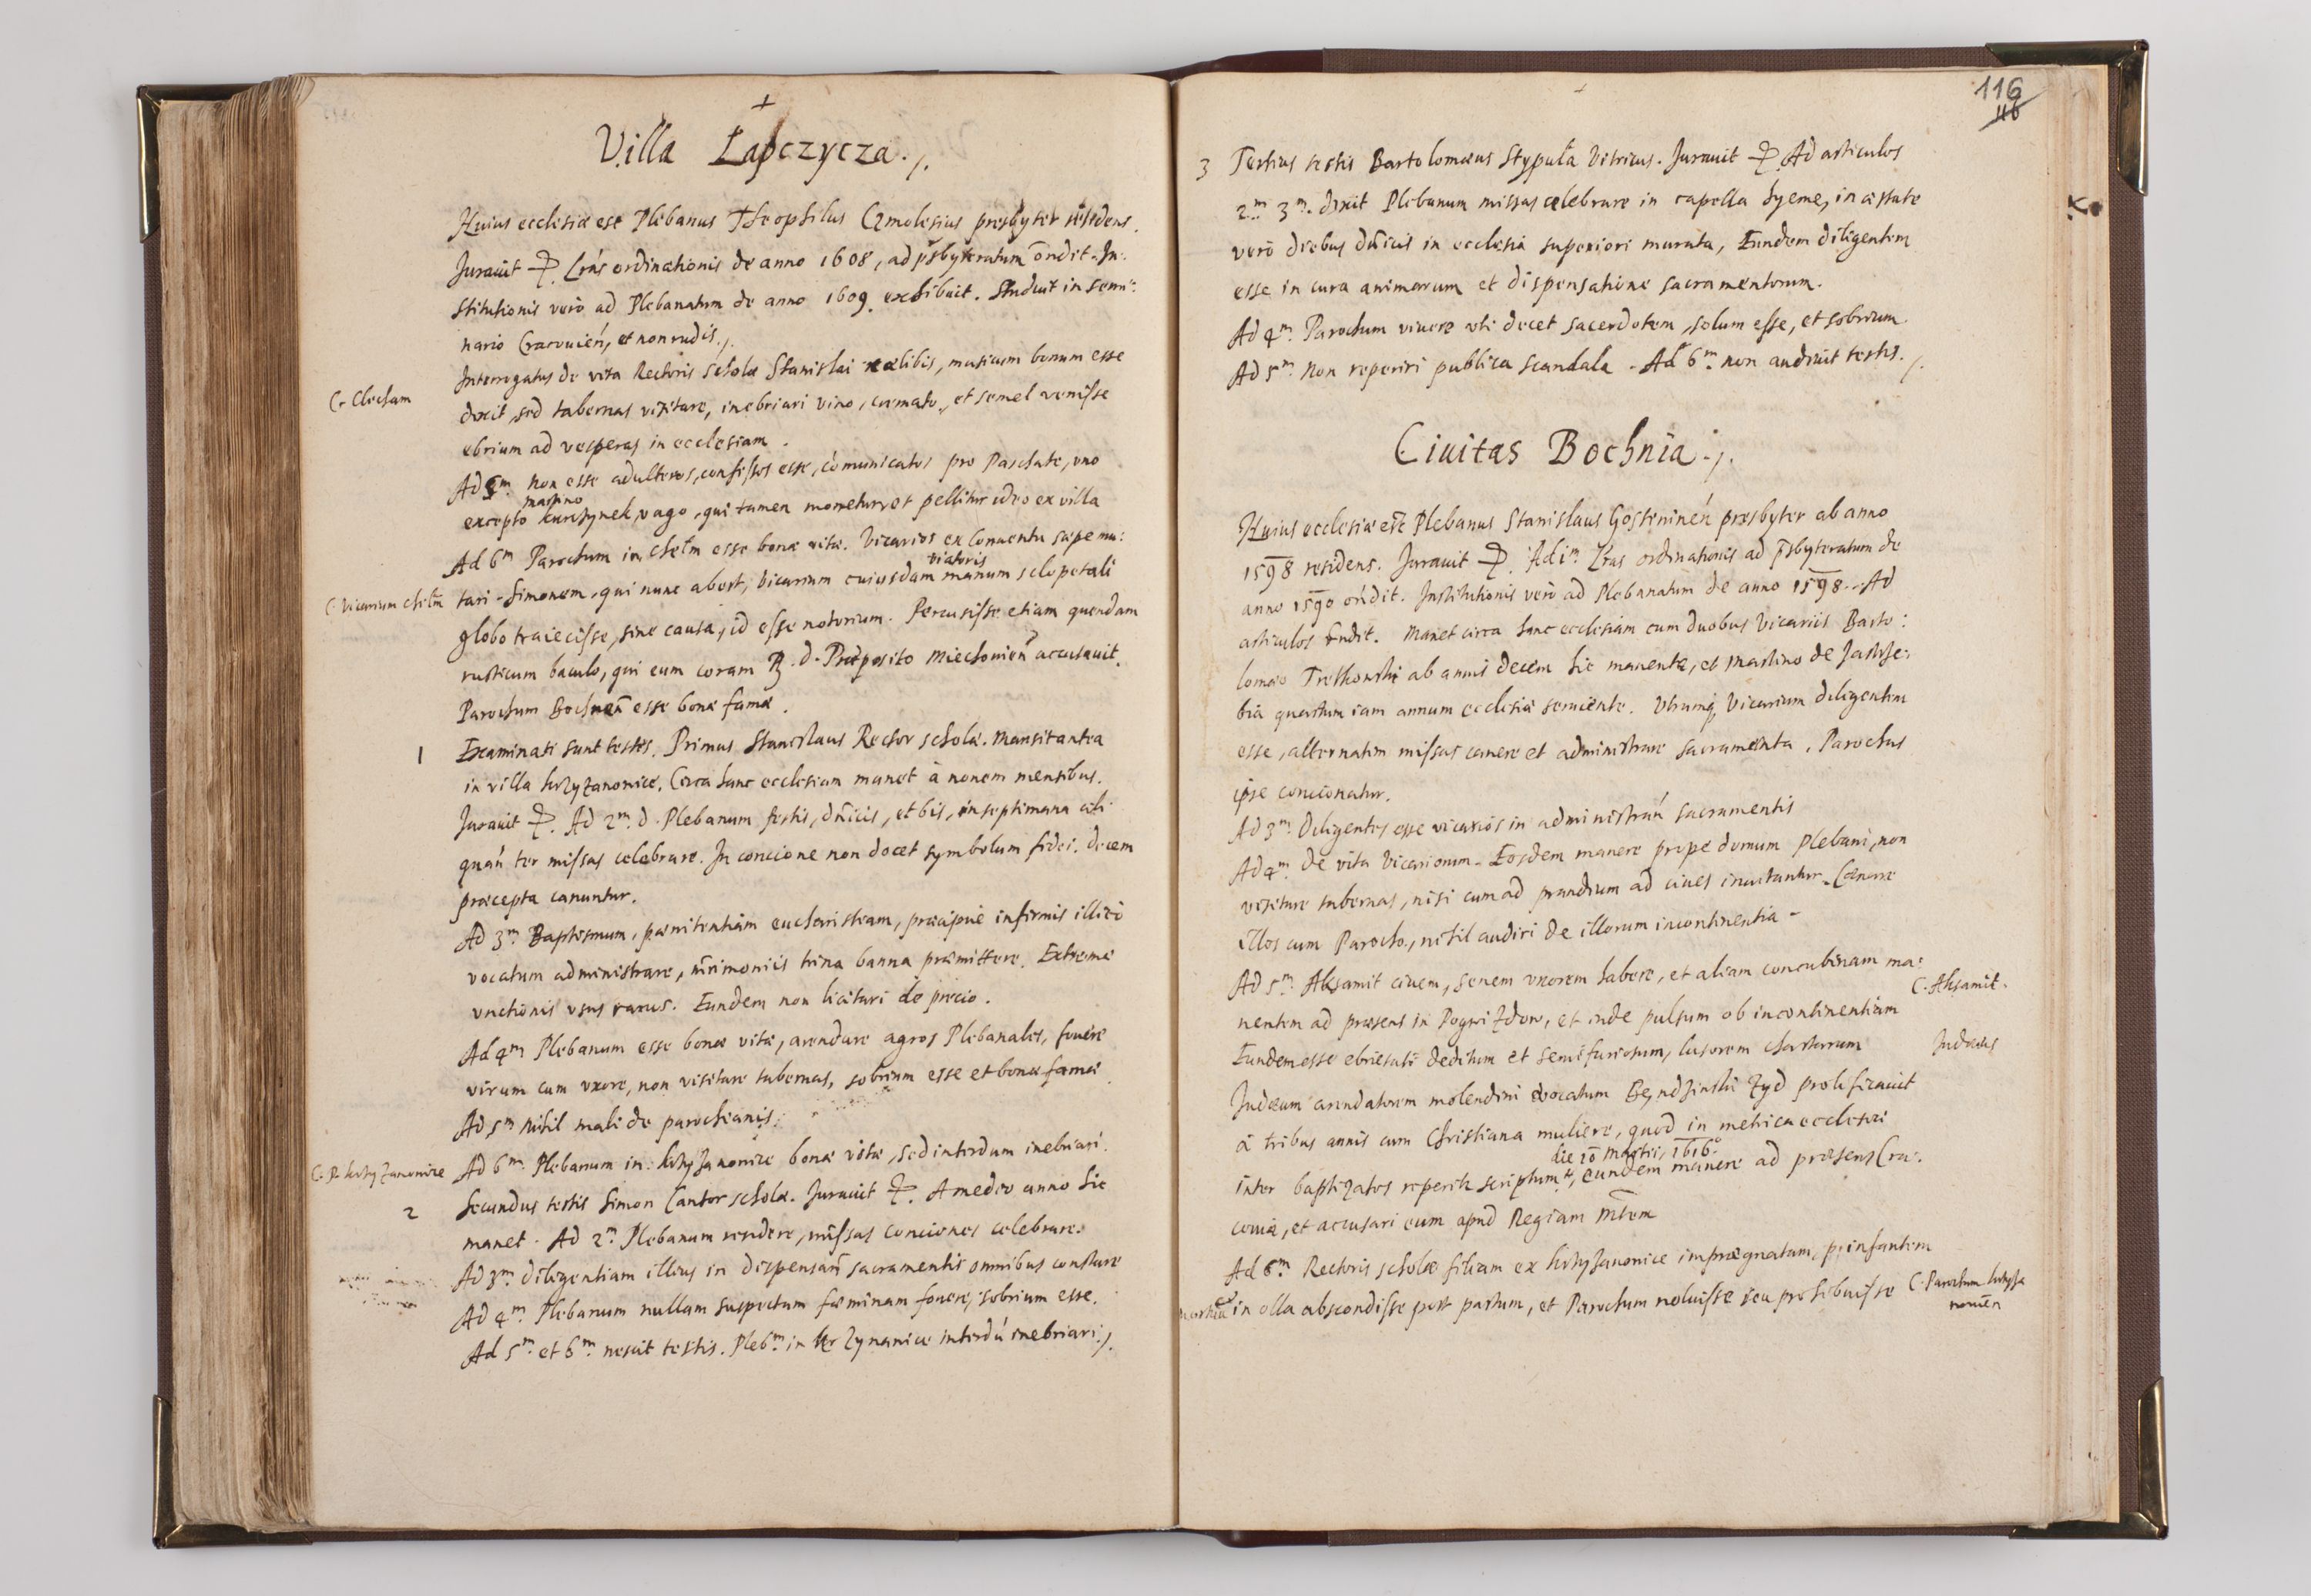 +
Villa Łapczycza ./.
Huius ecclesiæ est Plebanus Theophilus Czmolesius presbyter residens.
Jurauit ✠. Lrãs ordinationis de anno 1608, ad p̃sbyteratum õndit. In:
stitutionis verò ad Plebanatum de anno 1609. exhibuit. Studuit in semi:
nario Cracouień, et non rudis ./.
Interrogatus de vita Rectoris scholæ Stanislai cælibis, musicum bonum esse
C. Clecham
dixit, sed tabernas visitare, inebriari vino, cremato, et semel venisse
ebrium ad vesperas in ecclesiam.
Ad 5m. Non esse adulteros, confessos esse, cõmunicatos pro Paschate, uno
martino
excepto vago, qui tamen monetur, et pellitur ideo ex villa
Ad 6m Parochum in Chełm esse bonæ vitæ. Vicarios ex Conuentu sæpe mu:
viatoris
C. Vicarium Chełm
tari. Simonem, qui nunc abest, vicarium cuiusdam manum sclopetali
globo traiecisse, sine causa, id esse notorium. Percusisse etiam quendam
rusticum baculo, qui eum coram R. d. Præposito Miechouień accusauit.
Parochum Bochneñ esse bonæ famæ.
1 Examinati sunt testes. Primus Stanislaus Rector scholæ. Mansit antea
in villa Krzyzanowice. Circa hanc ecclesiam manet à nonem mensibus.
Jurauit ✠. Ad 2m. d. Plebanum festis, dñicis, et bis, in septimana ali:
quań ter missas celebrare. In concione non docet symbolum fidei. decem
præcepta canuntur.
Ad 3m. Baptismum, pænitentiam eucharistiam, præcipuè infirmis illicò
vocatum administrare, mr̃imoniis trina banna præmittere. Extremæ
vnctionis vsus rarus. Eundem non licitari de precio.
Ad 4m Plebanum esse bonæ vitæ, arendare agros Plebanales, fouere
virum cum vxore, non visitare tabernas, sobrium esse et bonæ famæ
Ad 5m Nihil mali de parochianis.
C. P. Krzyzanowice
Ad 6m. Plebanum in Krzyzanowice bonæ vitæ, sed interdum inebriari.
2 Secundus testis Simon Cantor scholæ. Jurauit ✠. A medio anno hic
manet. Ad 2m. Plebanum residere, missas conciones celebrare.
Ad 3m. diligentiam illius in dispensań sacramentis omnibus constare
Ad 4m Plebanum nullam suspectam fæminam fouere, sobrium esse.
Ad 5m. et 6m. nescit testis. Plebm. in Krzyzanowice interdũ inebriari ./.
116
116
3 Tertius testis Bartolomæus Stypuła Vitricus. Jurauit ✠. Ad articulos
2m. 3m. dixit Plebanum missas celebrare in capella hyeme, in æstate
verò diebus dñicis in ecclesia superiori murata, Eundem diligentem
esse in cura animarum et dispensatione sacramentorum.
Ad 4m. Parochum viuere vti decet sacerdotem, solum esse, et sobrium
Ad 5m. Non reperiri publica scandala. Ad 6m. non audiuit testis ./.
Ciuitas Bochnia ./.
Huius ecclesiæ est Plebanus Stanislaus Gostinineń præsbyter ab anno
1598 residens. Jurauit ✠. Ad 1m. Lrãs ordinationis ad p̃sbyteratum de
anno 1590 oñdit. Institutionis verò ad Plebanatum de anno 1598. Ad
articulos Manet circa hanc ecclesiam cum duobus Vicariis Barto:
lomæo Tretkowski ab annis decem hic manente, et Martino de Jastrze:
bia quartum iam annum ecclesiæ seruiente. Vtrumq; Vicarium diligentem
esse, alternatim missas canere et administrare sacramenta. Parochus
ipse concionatur.
Ad 3m. Diligentes esse vicarios in administrań sacramentis
Ad 4m. De vita Vicariorum. Eosdem manere prope domum Plebani, non
visitare tabernas, nisi cum ad prandium ad ciues inuitantur. Cænare
illos cum Parocho, nihil audiri de illorum incontinentia.
Ad 5m. Aksamit ciuem, senem vxorem habere, et aliam concubinam ma:
C. Aksamit.
nentem ad præsens in Pogwizdow, et inde pulsum ob incontinentiam
Eundem esse ebrietati deditum et semifuriosum, lusorem chartarum
Judæus
Judæum arendatorem molendini vocatum Bendzinski Zyd prolificauit
à tribus annis cum Christiana muliere, quod in metrica ecclesiæ
die 10 Martii, 1616.
inter baptizatos reperit scriptum, eundem manere ad præsens Cra:
couiæ, et accusari eum apud Regiam Mtem
Ad 6m. Rectoris scholæ filiam ex Krzyzanowice imprægnatam, infantem
in olla abscondisse post partum, et Parochum noluisse seu prohibuisse
C. Parochum Krzyza
noweń